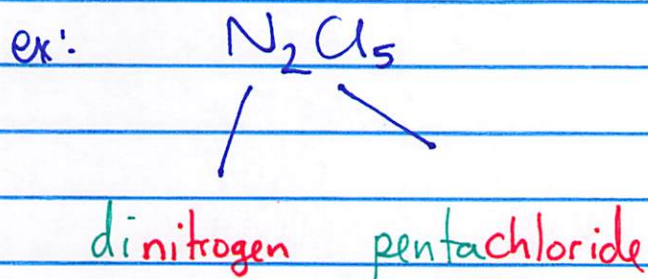 ex: N₂Cl₅
dinitrogen pentachloride